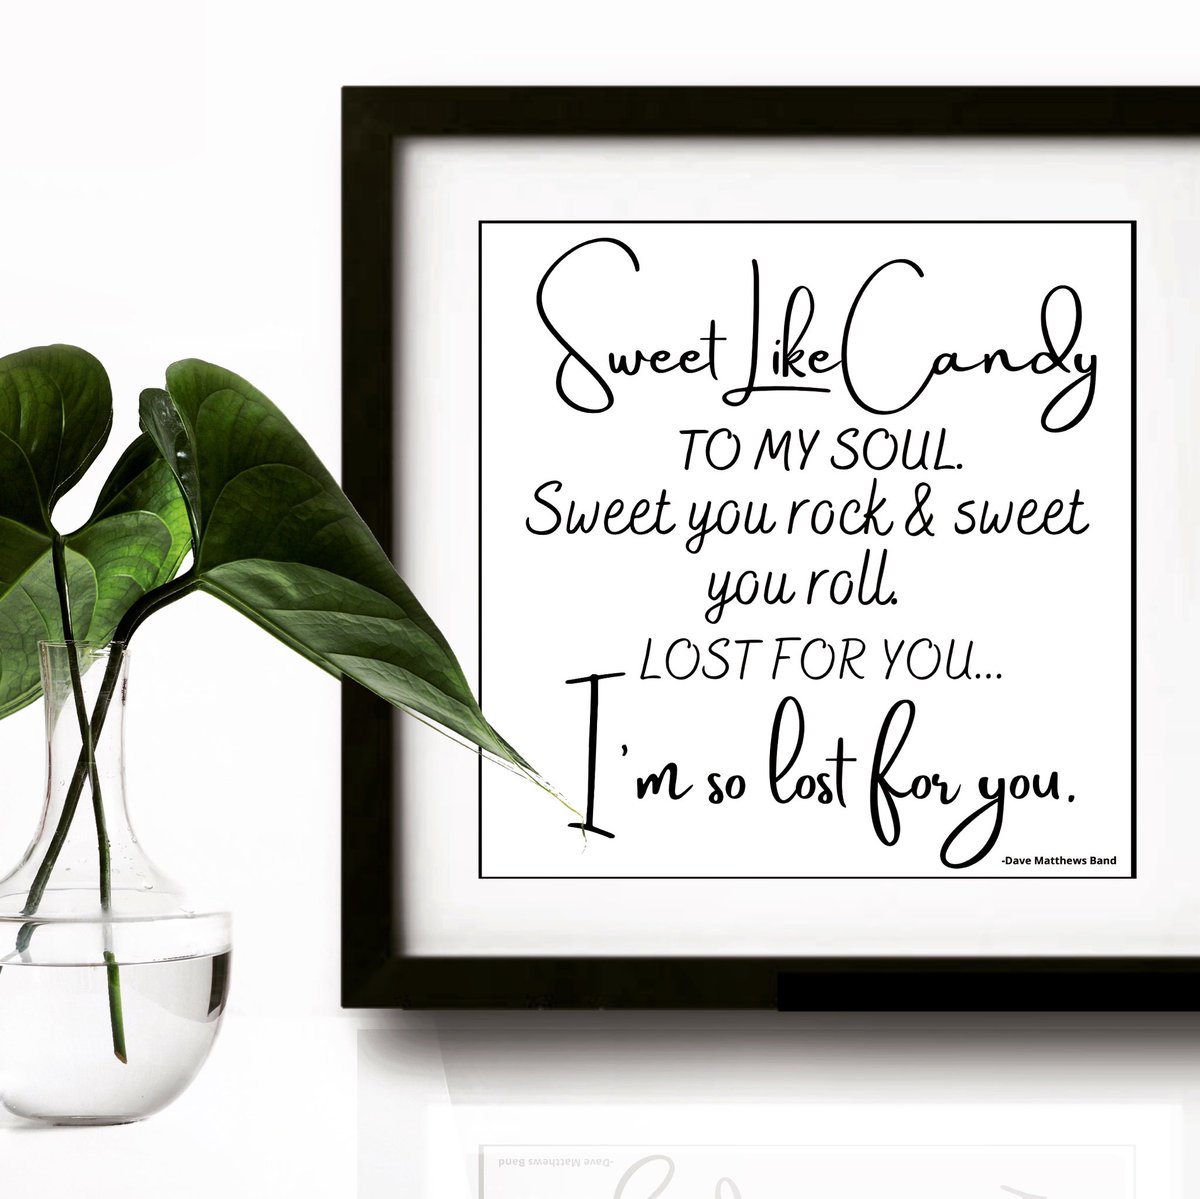 Sweet Like Candy
TO MY SOUL.
Sweet you rock & sweet
you roll.
LOST FOR YOU...
I'm so lost for you.
-Dave Matthews Band
-Dave Matthews Band